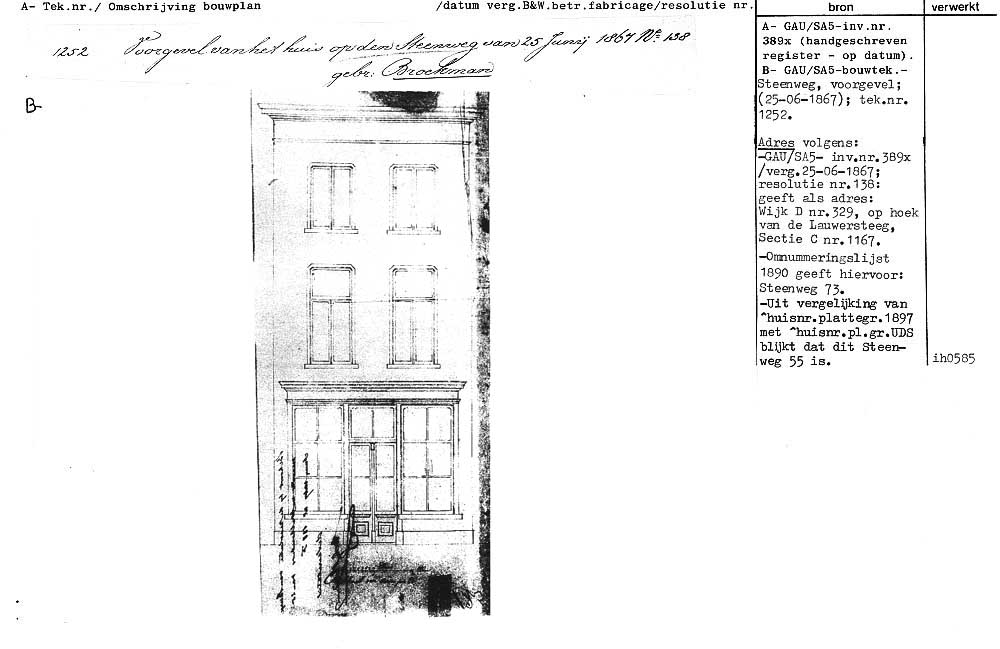 A- Tek.nr./ Omschrijving bouwplan /datum verg.B&W.betr.fabricage/resolutie nr.
bron
verwerkt
1252 Voorgevel van het huis op den Steenweg van 25 Junij 1867 No 138
gebr: Broekman
B-
A- GAU/SA5-inv.nr.
389x (handgeschreven
register - op datum).
B- GAU/SA5-bouwtek.-
Steenweg, voorgevel;
(25-06-1867); tek.nr.
1252.
Adres volgens:
-GAU/SA5- inv.nr.389x
/verg.25-06-1867;
resolutie nr.138:
geeft als adres:
Wijk D nr.329, op hoek
van de Lauwersteeg,
Sectie C nr.1167.
-Omnummeringslijst
1890 geeft hiervoor:
Steenweg 73.
-Uit vergelijking van
^huisnr.plattegr.1897
met ^huisnr.pl.gr.UDS
blijkt dat dit Steen-
weg 55 is.
ih0585